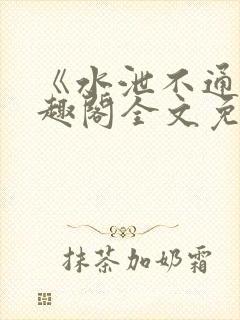 《水泄不通
趣阁全文免
抹茶加奶霜